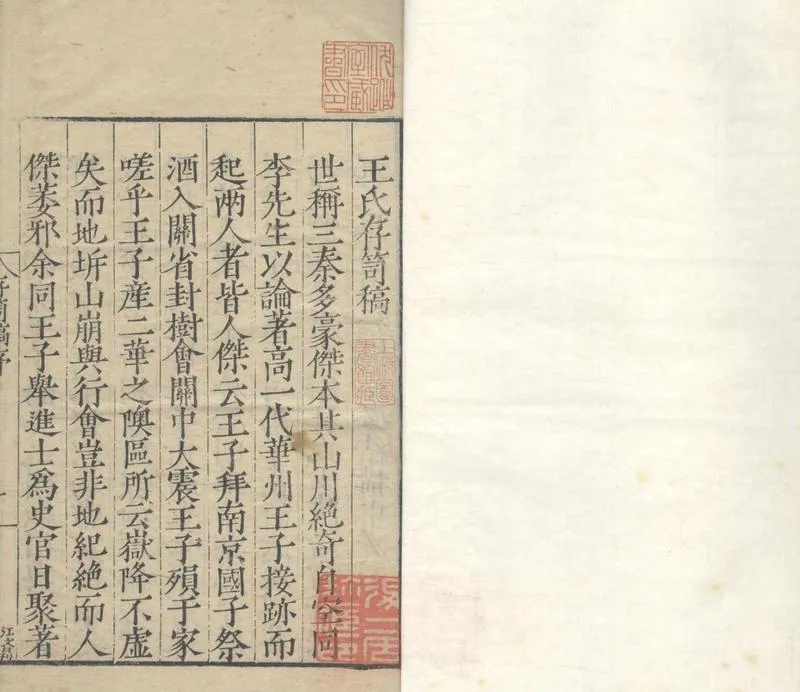 王氏存笥稿
世稱三秦多豪傑本其山川絶奇自空同
李先生以論著高一代華州王子接跡而
起兩人者皆人傑云王子拜南京國子祭
酒入關省封樹會關中大震王子殞于家
嗟乎王子産二華之隩區所云嶽降不虛
矣而地坼山崩與行會豈非地紀絶而人
傑萎邪余同王子舉進士爲史官日聚著